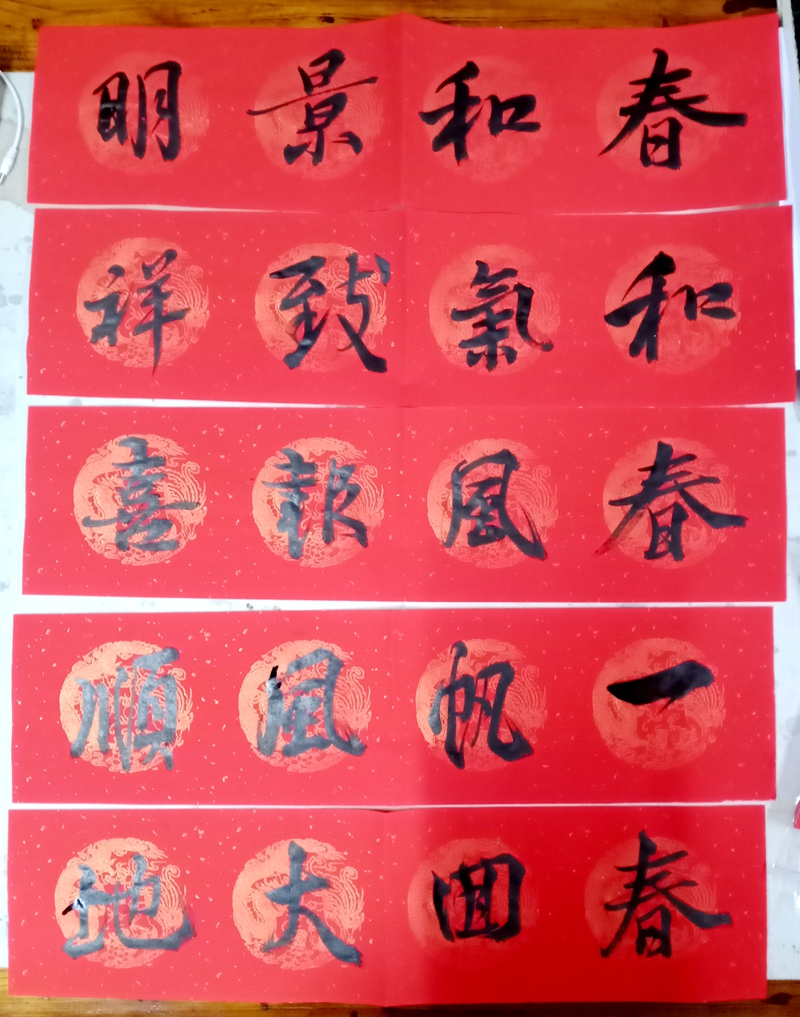 春和景明
和氣致祥
春風報喜
一帆風順
春回大地